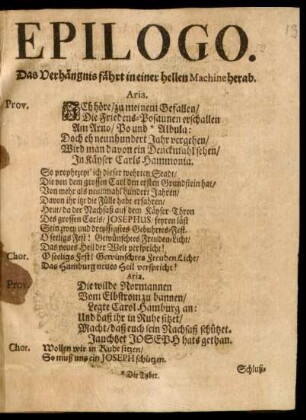 EPILOGO.
Das Verhängnis fährt in einer hellen Machine herab.
Aria.
Prov. Ich höre / zu meinem Gefallen /
Die Friedens-Posaunen erschallen
Am Arno / Po und * Albula:
Doch eh neunhundert Jahr vergehen /
Wird man davon ein Denckmahl sehen /
In Käyser Carls Hammonia.
So prophezeyt' ich dieser wehrten Stadt /
Die von dem grossen Carl den ersten Grundstein hat /
Von mehr als neunmahl hundert Jahren /
Davon ihr itzt die Fülle habt erfahren /
Heut / da der Nachsaß auf dem Käyser Thron
Des grossen Carls / JOSEPHUS feyren läst
Sein zwey und dreyssigstes Gebuhrts-Fest.
O seeligs Fest! Gewünschtes Freuden-Licht /
Das neues Heil der Welt verspricht!
Chor. O seeligs Fest! Gewünschtes Freuden-Licht /
Das Hamburg neues Heil verspricht!
Aria.
Prov. Die wilde Normannen
Vom Elbstrom zu bannen /
Legte Carol Hamburg an:
Und daß ihr in Ruhe sitzet /
Macht / daß euch sein Nachsaß schützet.
Jauchzet JOSEPH hats gethan.
Chor. Wollen wir in Ruhe sitzen /
So muß uns ein JOSEPH schützen.
* Die Tyber.
Schluß-